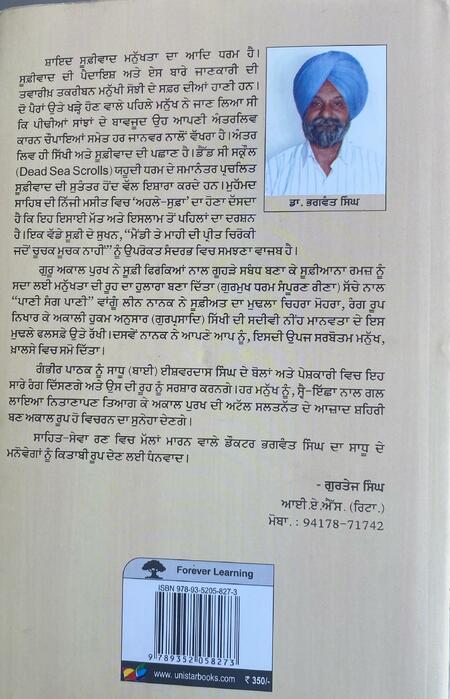 ਸ਼ਾਇਦ ਸੂਫ਼ੀਵਾਦ ਮਨੁੱਖਤਾ ਦਾ ਆਦਿ ਧਰਮ ਹੈ।
ਸੂਫ਼ੀਵਾਦ ਦੀ ਪੈਦਾਇਸ਼ ਅਤੇ ਏਸ ਬਾਰੇ ਜਾਣਕਾਰੀ ਦੀ
ਤਵਾਰੀਖ਼ ਤਕਰੀਬਨ ਮਨੁੱਖੀ ਸੋਝੀ ਦੇ ਸਫ਼ਰ ਦੀਆਂ ਹਾਣੀ ਹਨ।
ਦੋ ਪੈਰਾਂ ਉਤੇ ਖੜ੍ਹੇ ਹੋਣ ਵਾਲੇ ਪਹਿਲੇ ਮਨੁੱਖ ਨੇ ਜਾਣ ਲਿਆ ਸੀ
ਕਿ ਪੀਢੀਆਂ ਸਾਂਝਾਂ ਦੇ ਬਾਵਜੂਦ ਉਹ ਆਪਣੀ ਅੰਤਰਲਿਵ
ਕਾਰਨ ਚੌਪਾਇਆਂ ਸਮੇਤ ਹਰ ਜਾਨਵਰ ਨਾਲੋਂ ਵੱਖਰਾ ਹੈ। ਅੰਤਰ
ਲਿਵ ਹੀ ਸਿੱਖੀ ਅਤੇ ਸੂਫ਼ੀਵਾਦ ਦੀ ਪਛਾਣ ਹੈ। ਡੈੱਡ ਸੀ ਸਕ੍ਰੌਲ
(Dead Sea Scrolls) ਯਹੂਦੀ ਧਰਮ ਦੇ ਸਮਾਨੰਤਰ ਪ੍ਰਚਲਿਤ
ਸੂਫ਼ੀਵਾਦ ਦੀ ਸੁਤੰਤਰ ਹੋਂਦ ਵੱਲ ਇਸ਼ਾਰਾ ਕਰਦੇ ਹਨ। ਮੁਹੰਮਦ
ਸਾਹਿਬ ਦੀ ਨਿੱਜੀ ਮਸੀਤ ਵਿਚ 'ਅਹਲੇ-ਸੁਫ਼ਾ' ਦਾ ਹੋਣਾ ਦੱਸਦਾ
ਹੈ ਕਿ ਇਹ ਇਸਾਈ ਮੱਤ ਅਤੇ ਇਸਲਾਮ ਤੋਂ ਪਹਿਲਾਂ ਦਾ ਦਰਸ਼ਨ
ਹੈ। ਇਕ ਵੱਡੇ ਸੂਫ਼ੀ ਦੇ ਸੁਖਨ, "ਮੈਂਡੀ ਤੇ ਮਾਹੀ ਦੀ ਪ੍ਰੀਤ ਚਿਰੋਕੀ
ਜਦੋਂ ਚੂਚਕ ਮੂਚਕ ਨਾਹੀਂ" ਨੂੰ ਉਪਰੋਕਤ ਸੰਦਰਭ ਵਿਚ ਸਮਝਣਾ ਵਾਜਬ ਹੈ।
ਗੁਰੂ ਅਕਾਲ ਪੁਰਖ ਨੇ ਸੂਫ਼ੀ ਫਿਰਕਿਆਂ ਨਾਲ ਗੂਹੜੇ ਸਬੰਧ ਬਣਾ ਕੇ ਸੂਫ਼ੀਆਨਾ ਰਮਜ਼ ਨੂੰ
ਸਦਾ ਲਈ ਮਨੁੱਖਤਾ ਦੀ ਰੂਹ ਦਾ ਹੁਲਾਰਾ ਬਣਾ ਦਿੱਤਾ (ਗੁਰਮੁਖ ਧਰਮ ਸੰਪੂਰਣ ਰੀਣਾ) ਸੱਚੇ ਨਾਲ
"ਪਾਣੀ ਸੰਗ ਪਾਣੀ" ਵਾਂਗੂੰ ਲੀਨ ਨਾਨਕ ਨੇ ਸੂਫ਼ੀਅਤ ਦਾ ਮੁਢਲਾ ਚਿਹਰਾ ਮੋਹਰਾ, ਰੰਗ ਰੂਪ
ਨਿਖਾਰ ਕੇ ਅਕਾਲੀ ਹੁਕਮ ਅਨੁਸਾਰ (ਗੁਰਪ੍ਰਸਾਦਿ) ਸਿੱਖੀ ਦੀ ਸਦੀਵੀ ਨੀਂਹ ਮਾਨਵਤਾ ਦੇ ਇਸ
ਮੁਢਲੇ ਫਲਸਫ਼ੇ ਉਤੇ ਰੱਖੀ। ਦਸਵੇਂ ਨਾਨਕ ਨੇ ਆਪਣੇ ਆਪ ਨੂੰ, ਇਸਦੀ ਉਪਜ ਸਰਬੋਤਮ ਮਨੁੱਖ,
ਖ਼ਾਲਸੇ ਵਿਚ ਸਮੋ ਦਿੱਤਾ।
ਗੰਭੀਰ ਪਾਠਕ ਨੂੰ ਸਾਧੂ (ਬਾਈ) ਈਸ਼ਵਰਦਾਸ ਸਿੰਘ ਦੇ ਬੋਲਾਂ ਅਤੇ ਪੇਸ਼ਕਾਰੀ ਵਿਚ ਇਹ
ਸਾਰੇ ਰੰਗ ਦਿੱਸਣਗੇ ਅਤੇ ਉਸ ਦੀ ਰੂਹ ਨੂੰ ਸਰਸ਼ਾਰ ਕਰਨਗੇ। ਹਰ ਮਨੁੱਖ ਨੂੰ, ਸ੍ਵੈ-ਇੱਛਾ ਨਾਲ ਗਲ
ਲਾਇਆ ਨਿਤਾਣਾਪਣ ਤਿਆਗ ਕੇ ਅਕਾਲ ਪੁਰਖ ਦੀ ਅਟੱਲ ਸਲਤਨੱਤ ਦੇ ਆਜ਼ਾਦ ਸ਼ਹਿਰੀ
ਬਣ ਅਕਾਲ ਰੂਪ ਹੋ ਵਿਚਰਨ ਦਾ ਸੁਨੇਹਾ ਦੇਣਗੇ।
ਸਾਹਿਤ-ਸੇਵਾ ਰਣ ਵਿਚ ਮੱਲਾਂ ਮਾਰਨ ਵਾਲੇ ਡੌਕਟਰ ਭਗਵੰਤ ਸਿੰਘ ਦਾ ਸਾਧੂ ਦੇ
ਮਨੋਵੇਗਾਂ ਨੂੰ ਕਿਤਾਬੀ ਰੂਪ ਦੇਣ ਲਈ ਧੰਨਵਾਦ।
ਡਾ. ਭਗਵੰਤ ਸਿੰਘ
- ਗੁਰਤੇਜ ਸਿੰਘ
ਆਈ.ਏ.ਐੱਸ. (ਰਿਟਾ.)
ਮੋਬਾ. : 94178-71742
Forever Learning
ISBN 978-93-5205-827-3
9 789352 058273
www.unistarbooks.com
₹ 350/-